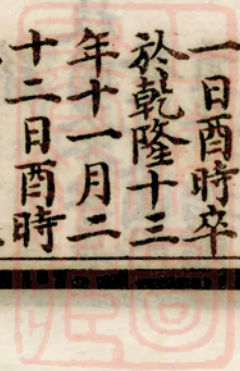 一日酉時卒
於乾隆十三
年十一月二
十二日酉時